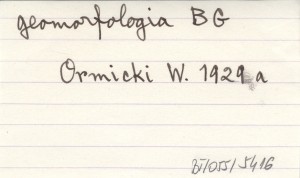 geomorfologia BG
Ormicki W. 1929 a
BT/055/5416